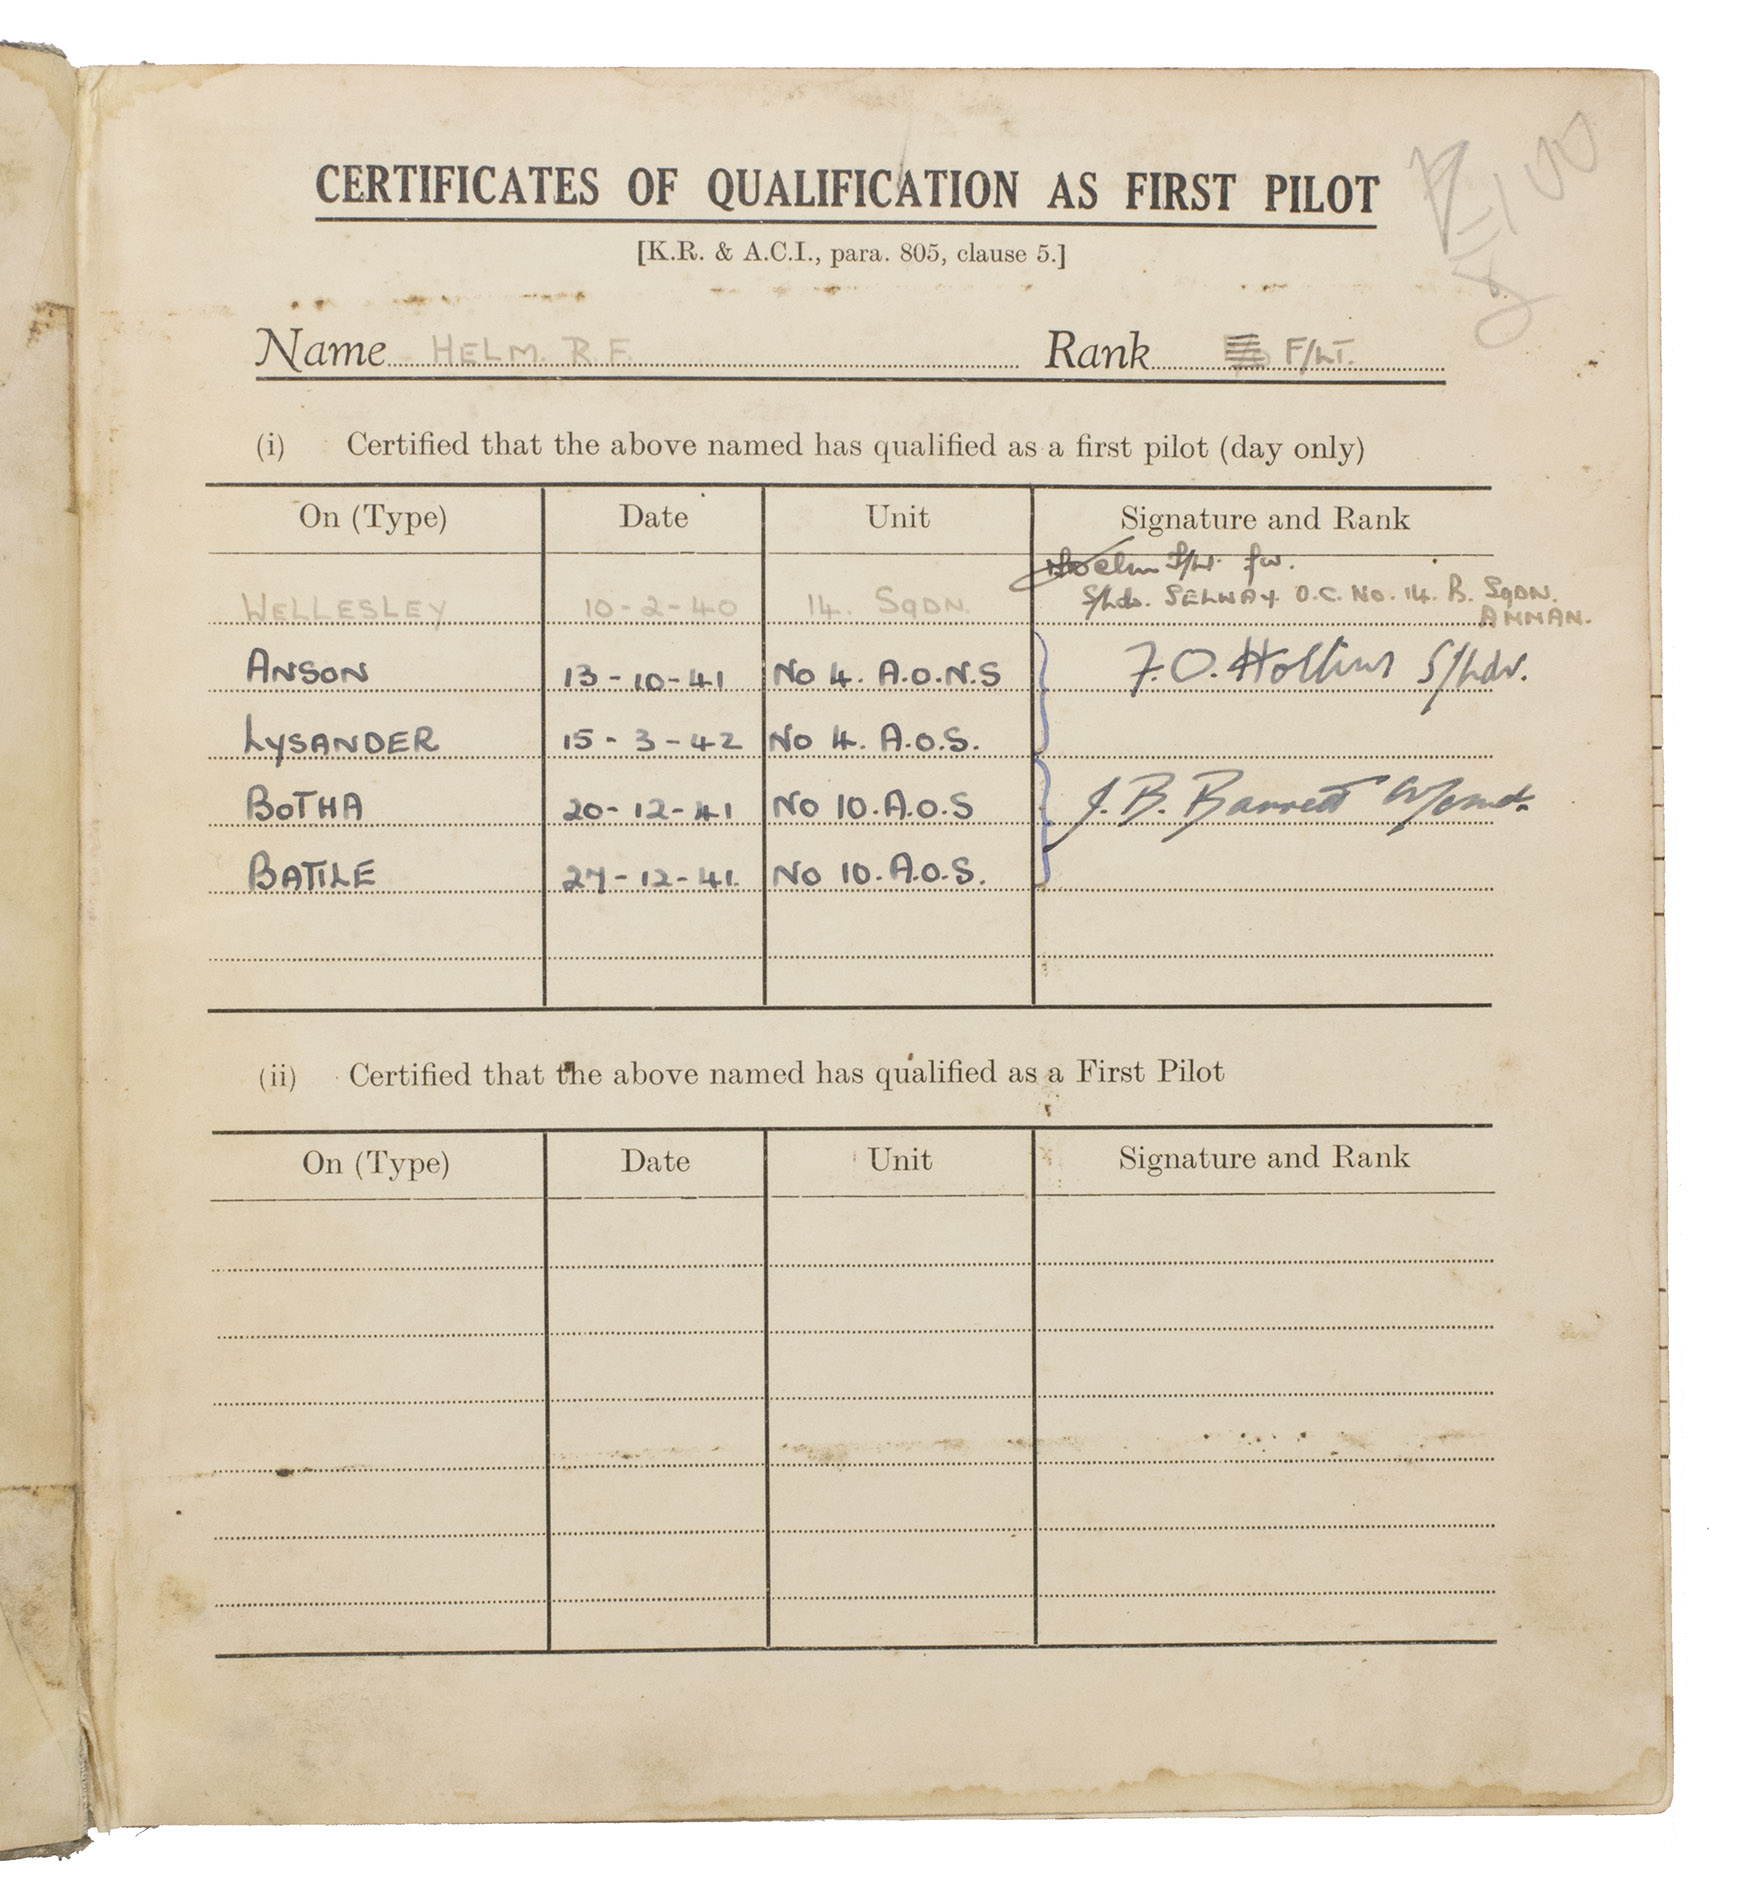 CERTIFICATES OF QUALIFICATION AS FIRST PILOT
[K.R. & A.C.I., para. 805, clause 5.]
Name HELM. R F. Rank F/LT.
(i) Certified that the above named has qualified as a first pilot (day only)
On (Type) Date Unit Signature and Rank
F/Lt. for.
S/Ldr. SELWAY O.C. No. 14. B. SQDN.
WELLESLEY 10-2-40 14. SQDN. AMMAN.
ANSON 13-10-41 No 4. A.O.N.S F.O. Hollins S/Ldr.
LYSANDER 15-3-42 No 4. A.O.S.
BOTHA 20-12-41 No 10. A.O.S J. B. Barrett W/Cmdr.
BATTLE 27-12-41. No 10. A.O.S.
(ii) Certified that the above named has qualified as a First Pilot
On (Type) Date Unit Signature and Rank